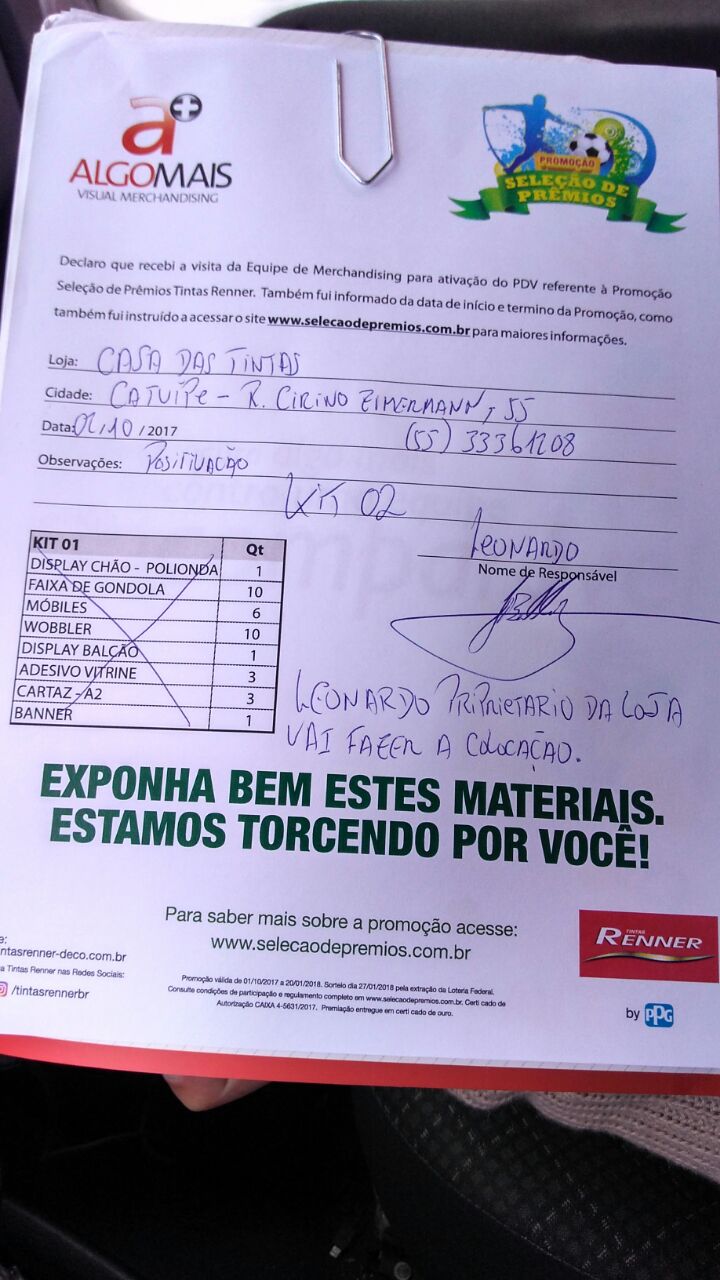 a+
ALGOMAIS
VISUAL MERCHANDISING
PROMOÇÃO
SELEÇÃO DE
PRÊMIOS
Declaro que recebi a visita da Equipe de Merchandising para ativação do PDV referente à Promoção
Seleção de Prêmios Tintas Renner. Também fui informado da data de início e termino da Promoção, como
também fui instruído a acessar o site www.selecaodepremios.com.br para maiores informações.
Loja: CASA DAS TINTAS
Cidade: CATUIPE - R. CIRINO EIMERMANN, 55
Data: /10/2017 (55) 33361208
Observações: POSITIVAÇÃO
KIT 02
LEONARDO
Nome de Responsável
KIT 01 Qt
DISPLAY CHÃO - POLIONDA 1
FAIXA DE GONDOLA 10
MÓBILES 6
WOBBLER 10
DISPLAY BALCÃO 1
ADESIVO VITRINE 3
CARTAZ - A2 3
BANNER 1
LEONARDO PRIPRIETARIO DA LOJA
VAI FAZER A COLOCAÇÃO.
EXPONHA BEM ESTES MATERIAIS.
ESTAMOS TORCENDO POR VOCÊ!
Para saber mais sobre a promoção acesse:
www.selecaodepremios.com.br
e:
ntasrenner-deco.com.br
a Tintas Renner nas Redes Sociais:
/tintasrennerbr
Promoção válida de 01/10/2017 a 20/01/2018. Sorteio dia 27/01/2018 pela extração da Loteria Federal.
Consulte condições de participação e regulamento completo em www.selecaodepremios.com.br. Certi cado de
Autorização CAIXA 4-5631/2017. Premiação entregue em certi cado de ouro.
TINTAS
RENNER
by PPG